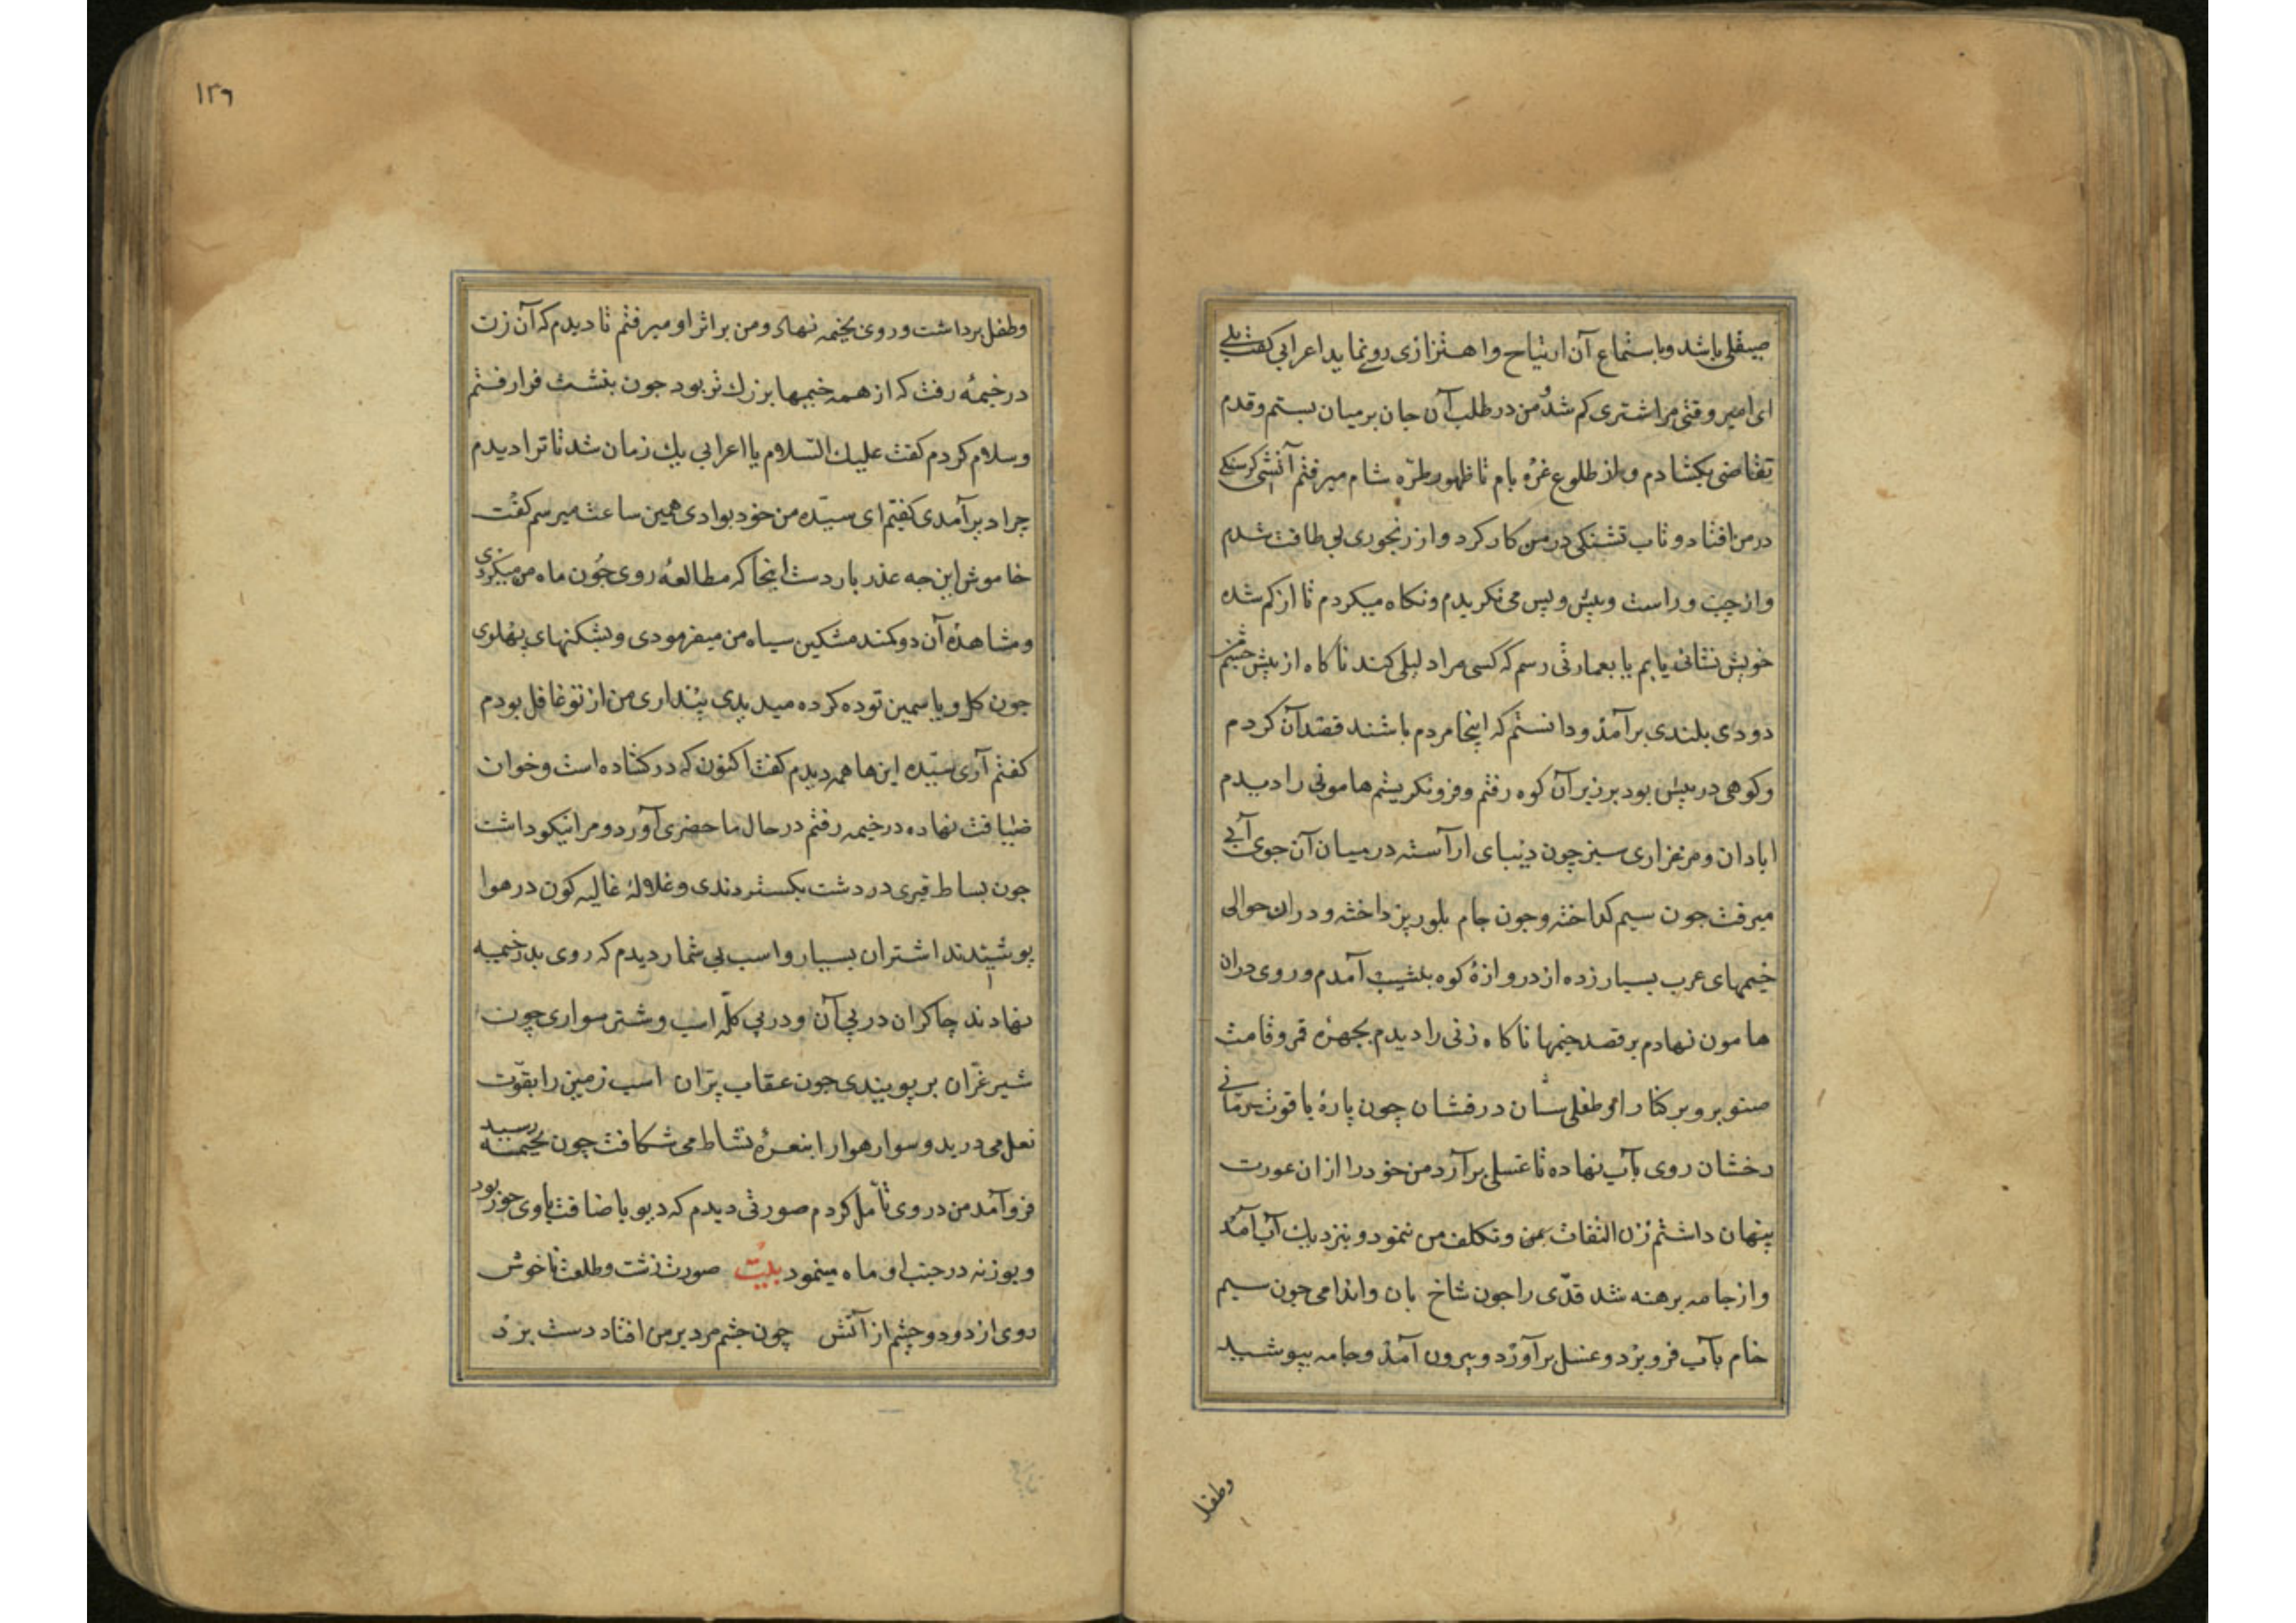 صیقلی باشد وباستماع آن ارتیاح واهتزازی رونماید اعرابی کفت بلی
ای امیر وقتی مرا شتری کم شد من در طلب آن جان بر میان بستم وقدم
تقاضی بکشادم واز طلوع غرهٔ بام تا ظهور طرّه شام میرفتم آتش کرسنکی
در من افتاد وتاب تشنکی در من کار کرد واز رنجوری بی طاقت شدم
واز چپ وراست وپیش وپس می نکریدم ونکاه میکردم تا از کم شده
خویش نشانی یابم یا بعمارتی رسم که کسی مرا دلیلی کند ناکاه از پیش چشم من
دودی بلندی برآمد ودانستم که اینجا مردم باشند قصد آن کردم
وکوهی در پیش بود بر زبر آن کوه رفتم وفرو نکریستم هامونی را دیدم
ابادان ومرغزاری سبز چون دیبای اراسته در میان آن جوی آبی
میرفت جون سیم کداخته وجون جام بلور پرداخته ودران حوالی
خیمهای عرب بسیار زده از دروازهٔ کوه بنشیب آمدم وروی دران
هامون نهادم بر قصد خیمها ناکاه زنی را دیدم بچهرهٔ قمر وقامت
صنوبر وبر کنار او طفلی سان درفشان چون پارهٔ یاقوت رمّانی
رخشان روی بآب نهاده تا غسلی برآرد من خود را ازان عورت
پنهان داشتم زن التفات بمن وتکلف من ننمود وبنزدیک آب آمد
واز جامه برهنه شد قدّی را جون شاخ بان واندامی چون سیم
خام بآب فرو برد وغسل برآورد وبیرون آمد وجامه بپوشید
وطفل
١٢٦
وطفل برداشت وروی بخیمه نهاد ومن بر اثر او میرفتم تا دیدم که آن زن
در خیمهٔ رفت که از همه خیمها بزرك تر بود جون بنشست فرا رفتم
وسلام کردم کفت علیك السّلام یا اعرابی یك زمان شد تا ترا دیدم
چرا دیر آمدی کفتم ای سیّده من خود بوادی همین ساعت میرسم کفت
خاموش این چه عذر باردست اینجا که مطالعهٔ روی چون ماه من میکردی
ومشاهدهٔ آن دو کمند مشکین سیاه من میفرمودی وشکنهای پهلوی
چون کل ویاسمین توده کرده میدیدی پنداری من از تو غافل بودم
کفتم آری سیّده این ها همه دیدم کفت اکنون که در کشاده است وخوان
ضیافت نهاده در خیمه رفتم در حال ما حضری آورد ومرا نیکو داشت
جون بساط قیری در دشت بکستردندی وغلالهٔ غالیه کون در هوا
پوشیدند اشتران بسیار واسب بی شمار دیدم که روی بدر خیمه
نهادند چاکران در پی آن ودر پی کلّه اسب وشتر سواری چون
شیر غرّان بر پویندی جون عقاب پرّان اسب زمین را بقوّت
نعل می درید وسوار هوا را بنعرهٔ نشاط می شکافت چون بخیمه رسید
فرو آمد من در وی تأمّل کردم صورتی دیدم که دیو باضافت با وی حور بود
وبوزنه در جنب او ماه مینمود بیت صورت زشت وطلعت ناخوش
روی از دود وچشم از آتش چون چشم مرد بر من افتاد دست برد